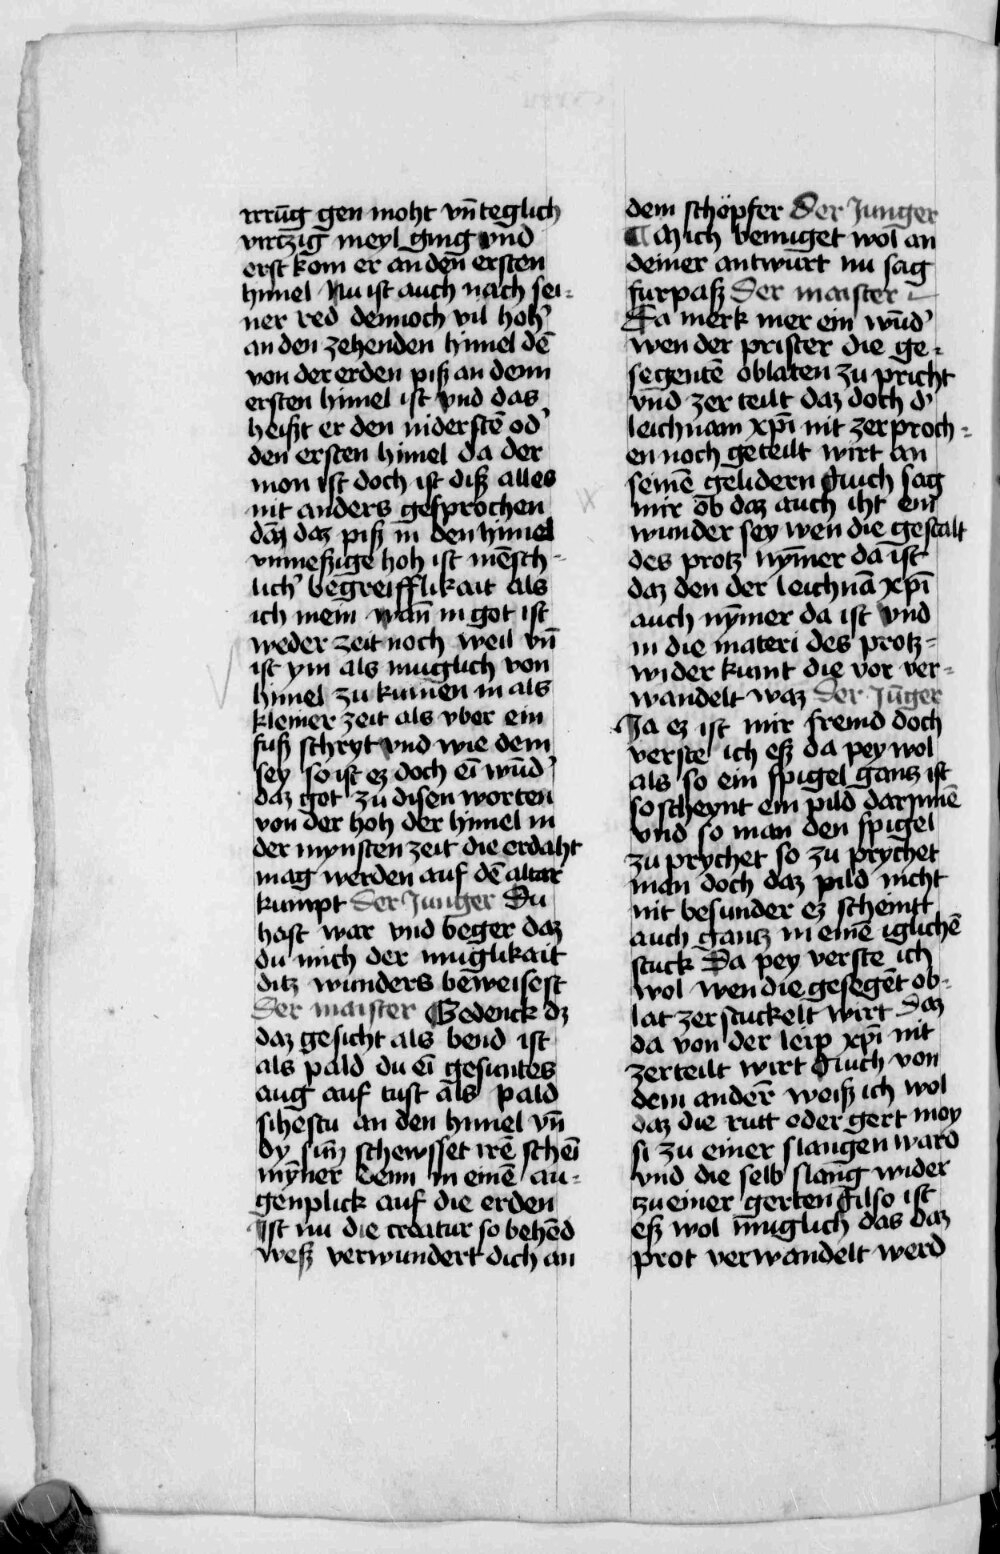 gen moht vñ teglich
virtzig meyl ging vnd
erst kom er an den ersten
himel Nu ist auch nach sei⸗
ner red dennoch vil hoh᾽
an den zehenden himel dē
von der erden piß an denn
ersten himel ist vnd das
heißt er den niderstē od᾽
den ersten himel da der
mon ist doch ist diß alles
nit anders gesprochen
dañ daz piß in den himel
vnmeßige hoh ist mēsch⸗
lich᾽ begreifflikait als
ich mein wañ in got ist
weder zeit noch weil vñ
ist ym als muglich von
himel zu kumen in als
kleiner zeit als vber ein
fuß schryt vnd wie dem
sey so ist ez doch eī wūd᾽
daz got zu disen worten
von der hoh der himel in
der mynsten zeit die erdaht
mag werden auf dē altar
kumpt Der Junger Du
hast war vnd beger daz
du mich der muglikait
ditz wunders beweisest
Der maister Gedenck dz
daz gesicht als bend ist
als pald du eī gesuntes
aug auf tust als pald
sihestu an den himel vñ
dy suñ schewsset irē scheī
mȳner denn in einē au⸗
genplick auf die erden
Ist nu die creatur so behēd
weß verwundert dich an
dem schöpfer Der Junger
¶ Mich benuget wol an
deiner antwurt nu sag
furpaß Der maister
Da merk mer ein wūd᾽
wen der prister die ge⸗
segentē oblaten zu pricht
vnd zer teilt daz doch d᾽
leichnam xp̄i nit zerproch⸗
en noch geteilt wirt an
seinē gelidern Auch sag
mir ob daz auch iht ein
wunder sey wen die gestalt
des protz nȳmer da ist
daz den der leichnā xp̄i
auch nȳmer da ist vnd
in die materi des protz⸗
wider kumt die vor ver⸗
wandelt waz Der Jūger
Ja ez ist mir fremd doch
verste ich eß da pey wol
als so ein spigel gantz ist
so scheynt ein pild darynnē
vnd so man den spigel
zu prychet so zu prychet
man doch daz pild nicht
nit besunder ez scheintt
auch gantz in einē iglichē
stuck Da pey verste ich
wol wen die gesegēt ob⸗
lat zer stuckelt wirt daz
da von der leip xp̄i nit
zerteilt wirt Auch von
dem anderr weiß ich wol
daz die rutt oder gert moy
si zu einer slangen ward
vnd die selb slang wider
zu einer gerten Also ist
eß wol muglich das daz
prot verwandelt werd